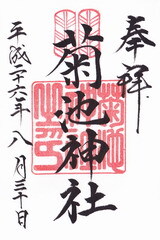 奉拝
菊池神社
平成二十六年八月三十日